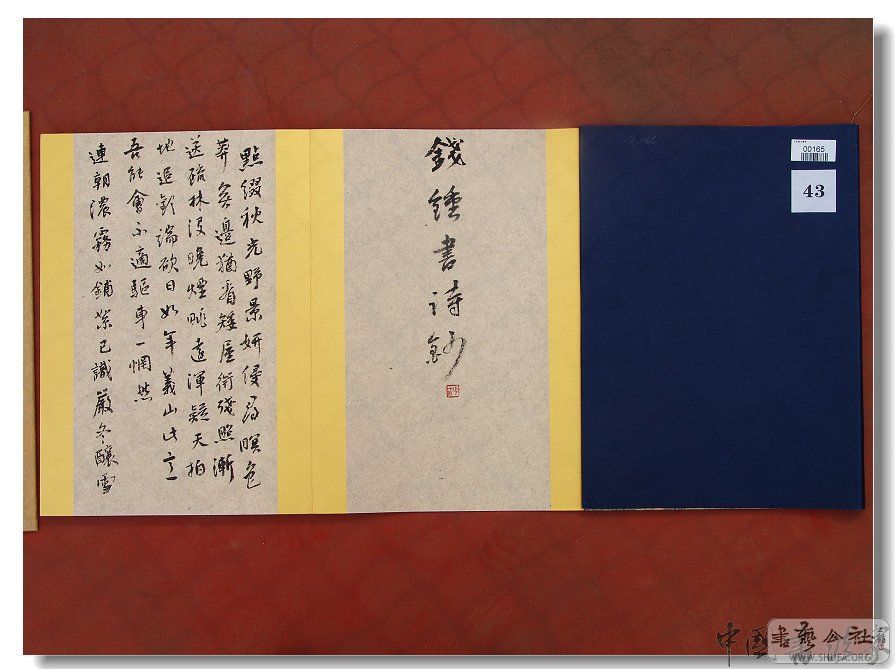 00165
43
錢鍾書詩鈔
點綴秋光野景妍侵尋暝色
莽無邊猶看矮屋銜殘照漸
送疏林沒晚煙眺遠渾疑天拍
地追歡端欲日如年義山此意
吾能會不適驅車一惘然
連朝濃霧如鋪絮已識嚴冬釀雪
中国書藝公社
WWW.SHUFA.ORG